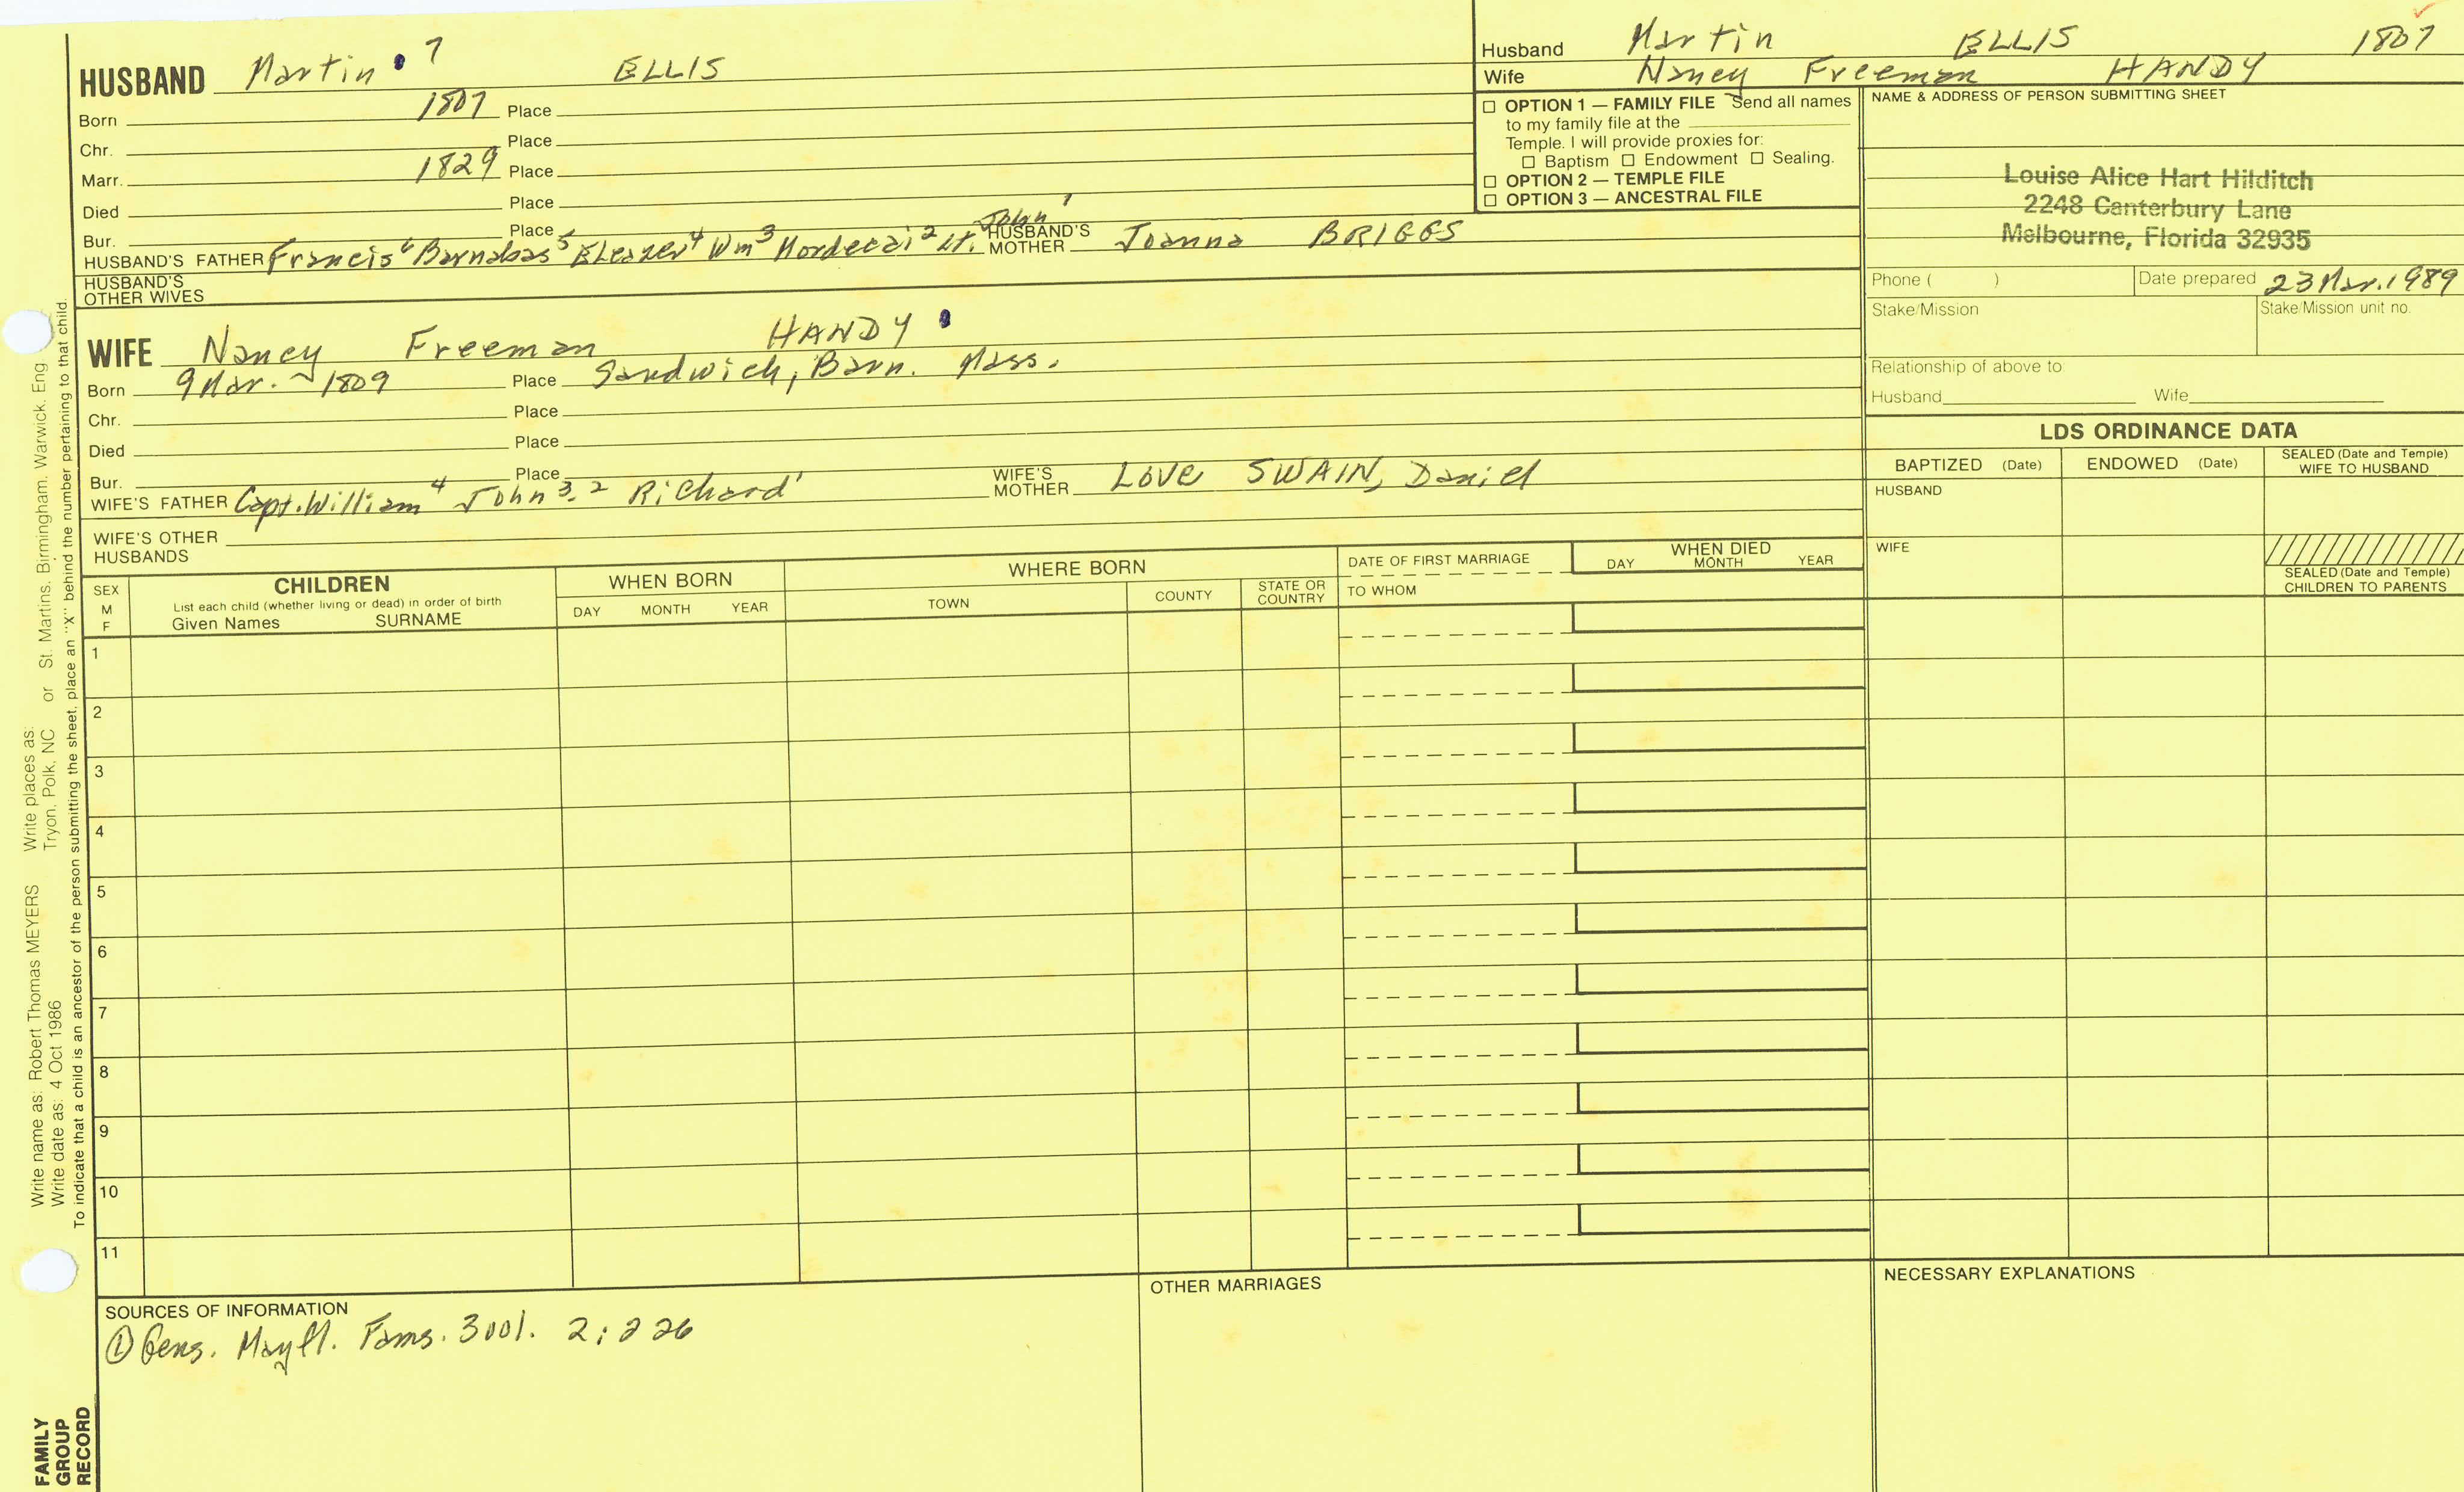 HUSBAND Martin 7 ELLIS
Born 1807 Place
Chr. Place
Marr. 1829 Place
Died Place
Bur. Place
HUSBAND'S FATHER Francis 6 Barnabas 5 Eleazer 4 Wm 3 Mordecai 2 Lt. John 1 HUSBAND'S MOTHER Joanna BRIGGS
HUSBAND'S OTHER WIVES
WIFE Nancy Freeman HANDY
Born 9 Mar. 1809 Place Sandwich, Barn. Mass.
Chr. Place
Died Place
Bur. Place
WIFE'S FATHER Capt. William 4 John 3, 2 Richard 1 WIFE'S MOTHER Love SWAIN, Daniel
WIFE'S OTHER HUSBANDS
Husband Martin ELLIS 1807
Wife Nancy Freeman HANDY
☐ OPTION 1 — FAMILY FILE Send all names
to my family file at the
Temple. I will provide proxies for:
☐ Baptism ☐ Endowment ☐ Sealing.
☐ OPTION 2 — TEMPLE FILE
☐ OPTION 3 — ANCESTRAL FILE
NAME & ADDRESS OF PERSON SUBMITTING SHEET
Louise Alice Hart Hilditch
2248 Canterbury Lane
Melbourne, Florida 32935
Phone ( ) Date prepared 23 Mar. 1989
Stake/Mission Stake/Mission unit no.
Relationship of above to:
Husband Wife
LDS ORDINANCE DATA
BAPTIZED (Date) ENDOWED (Date) SEALED (Date and Temple) WIFE TO HUSBAND
HUSBAND
WIFE
SEALED (Date and Temple) CHILDREN TO PARENTS
SEX M F
CHILDREN
List each child (whether living or dead) in order of birth
Given Names SURNAME
WHEN BORN
DAY MONTH YEAR
WHERE BORN
TOWN COUNTY STATE OR COUNTRY
DATE OF FIRST MARRIAGE
TO WHOM
WHEN DIED
DAY MONTH YEAR
1
2
3
4
5
6
7
8
9
10
11
SOURCES OF INFORMATION
① Gens. Mayfl. Fams. 3vol. 2:226
OTHER MARRIAGES
NECESSARY EXPLANATIONS
Write name as: Robert Thomas MEYERS Write places as:
Write date as: 4 Oct 1986 Tryon, Polk, NC or St. Martins, Birmingham, Warwick, Eng
To indicate that a child is an ancestor of the person submitting the sheet, place an "X" behind the number pertaining to that child.
FAMILY
GROUP
RECORD